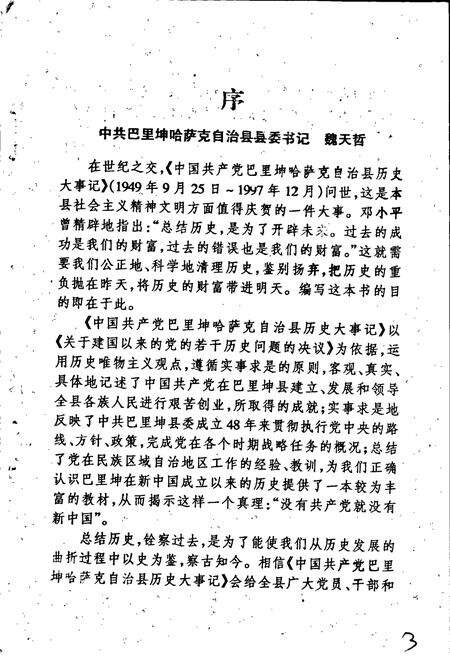 序
中共巴里坤哈萨克自治县县委书记 魏天哲
在世纪之交,《中国共产党巴里坤哈萨克自治县历史
大事记》(1949年9月25日~1997年12月)问世,这是本
县社会主义精神文明方面值得庆贺的一件大事。邓小平
曾精辟地指出:“总结历史,是为了开辟未来。过去的成
功是我们的财富,过去的错误也是我们的财富。”这就需
要我们公正地、科学地清理历史,鉴别扬弃,把历史的重
负抛在昨天,将历史的财富带进明天。编写这本书的目
的即在于此。
《中国共产党巴里坤哈萨克自治县历史大事记》以
《关于建国以来的党的若干历史问题的决议》为依据,运
用历史唯物主义观点,遵循实事求是的原则,客观、真实、
具体地记述了中国共产党在巴里坤县建立、发展和领导
全县各族人民进行艰苦创业,所取得的成就;实事求是地
反映了中共巴里坤县委成立48年来贯彻执行党中央的路
线、方针、政策,完成党在各个时期战略任务的概况;总结
了党在民族区域自治地区工作的经验、教训,为我们正确
认识巴里坤在新中国成立以来的历史提供了一本较为丰
富的教材,从而揭示这样一个真理:“没有共产党就没有
新中国”。
总结历史,铨察过去,是为了能使我们从历史发展的
曲折过程中以史为鉴,察古知今。相信《中国共产党巴里
坤哈萨克自治县历史大事记》会给全县广大党员、干部和
3